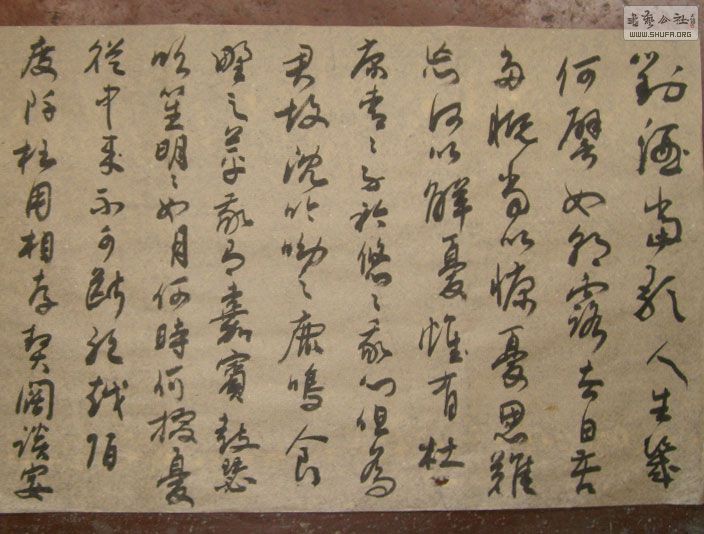 對酒當歌人生幾
何譬如朝露去日苦
多慨當以慷憂思難
忘何以解憂惟有杜
康青々子衿悠々我心但為
君故沈吟呦々鹿鳴食
野之苹我有嘉賓鼓瑟
吹笙明々如月何時何掇憂
從中來不可斷絕越陌
度阡枉用相存契闊談宴
書藝公社
WWW.SHUFA.ORG